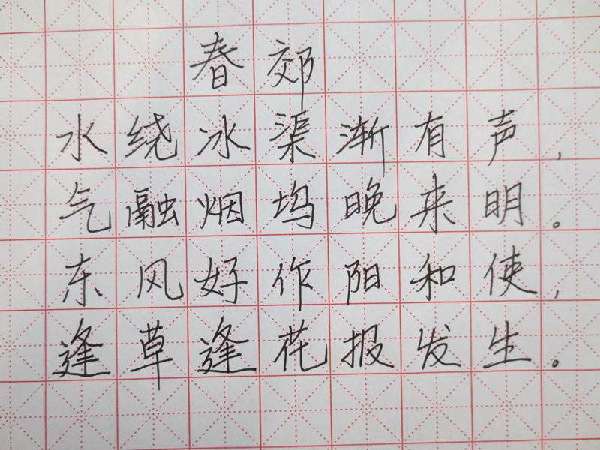 春郊
水绕冰渠渐有声，
气融烟坞晚来明。
东风好作阳和使，
逢草逢花报发生。